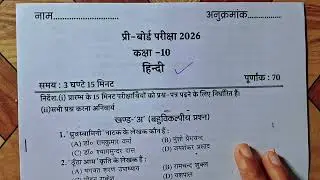 नाम.................... अनुक्रमांक....................
प्री-बोर्ड परीक्षा 2026
कक्षा -10
हिन्दी
समय : 3 घण्टे 15 मिनट पूर्णांक : 70
निर्देश-(i) प्रारम्भ के 15 मिनट परीक्षार्थियों को प्रश्न-पत्र पढ़ने के लिए निर्धारित है।
(ii)सभी प्रश्न करना अनिवार्य
खण्ड-'अ' (बहुविकल्पीय प्रश्न)
1. 'ध्रुवस्वामिनी' नाटक के लेखक कौन हैं :
(A) डॉ० रामकुमार वर्मा (B) मुंशी प्रेमचन्द
(C) डॉ० श्यामसुन्दर दास (D) जयशंकर प्रसाद
2. कृति के लेखक हैं :
(A) भगवत शरण उपाध्याय (B) रामचन्द्र शुक्ल
(D) यशपाल